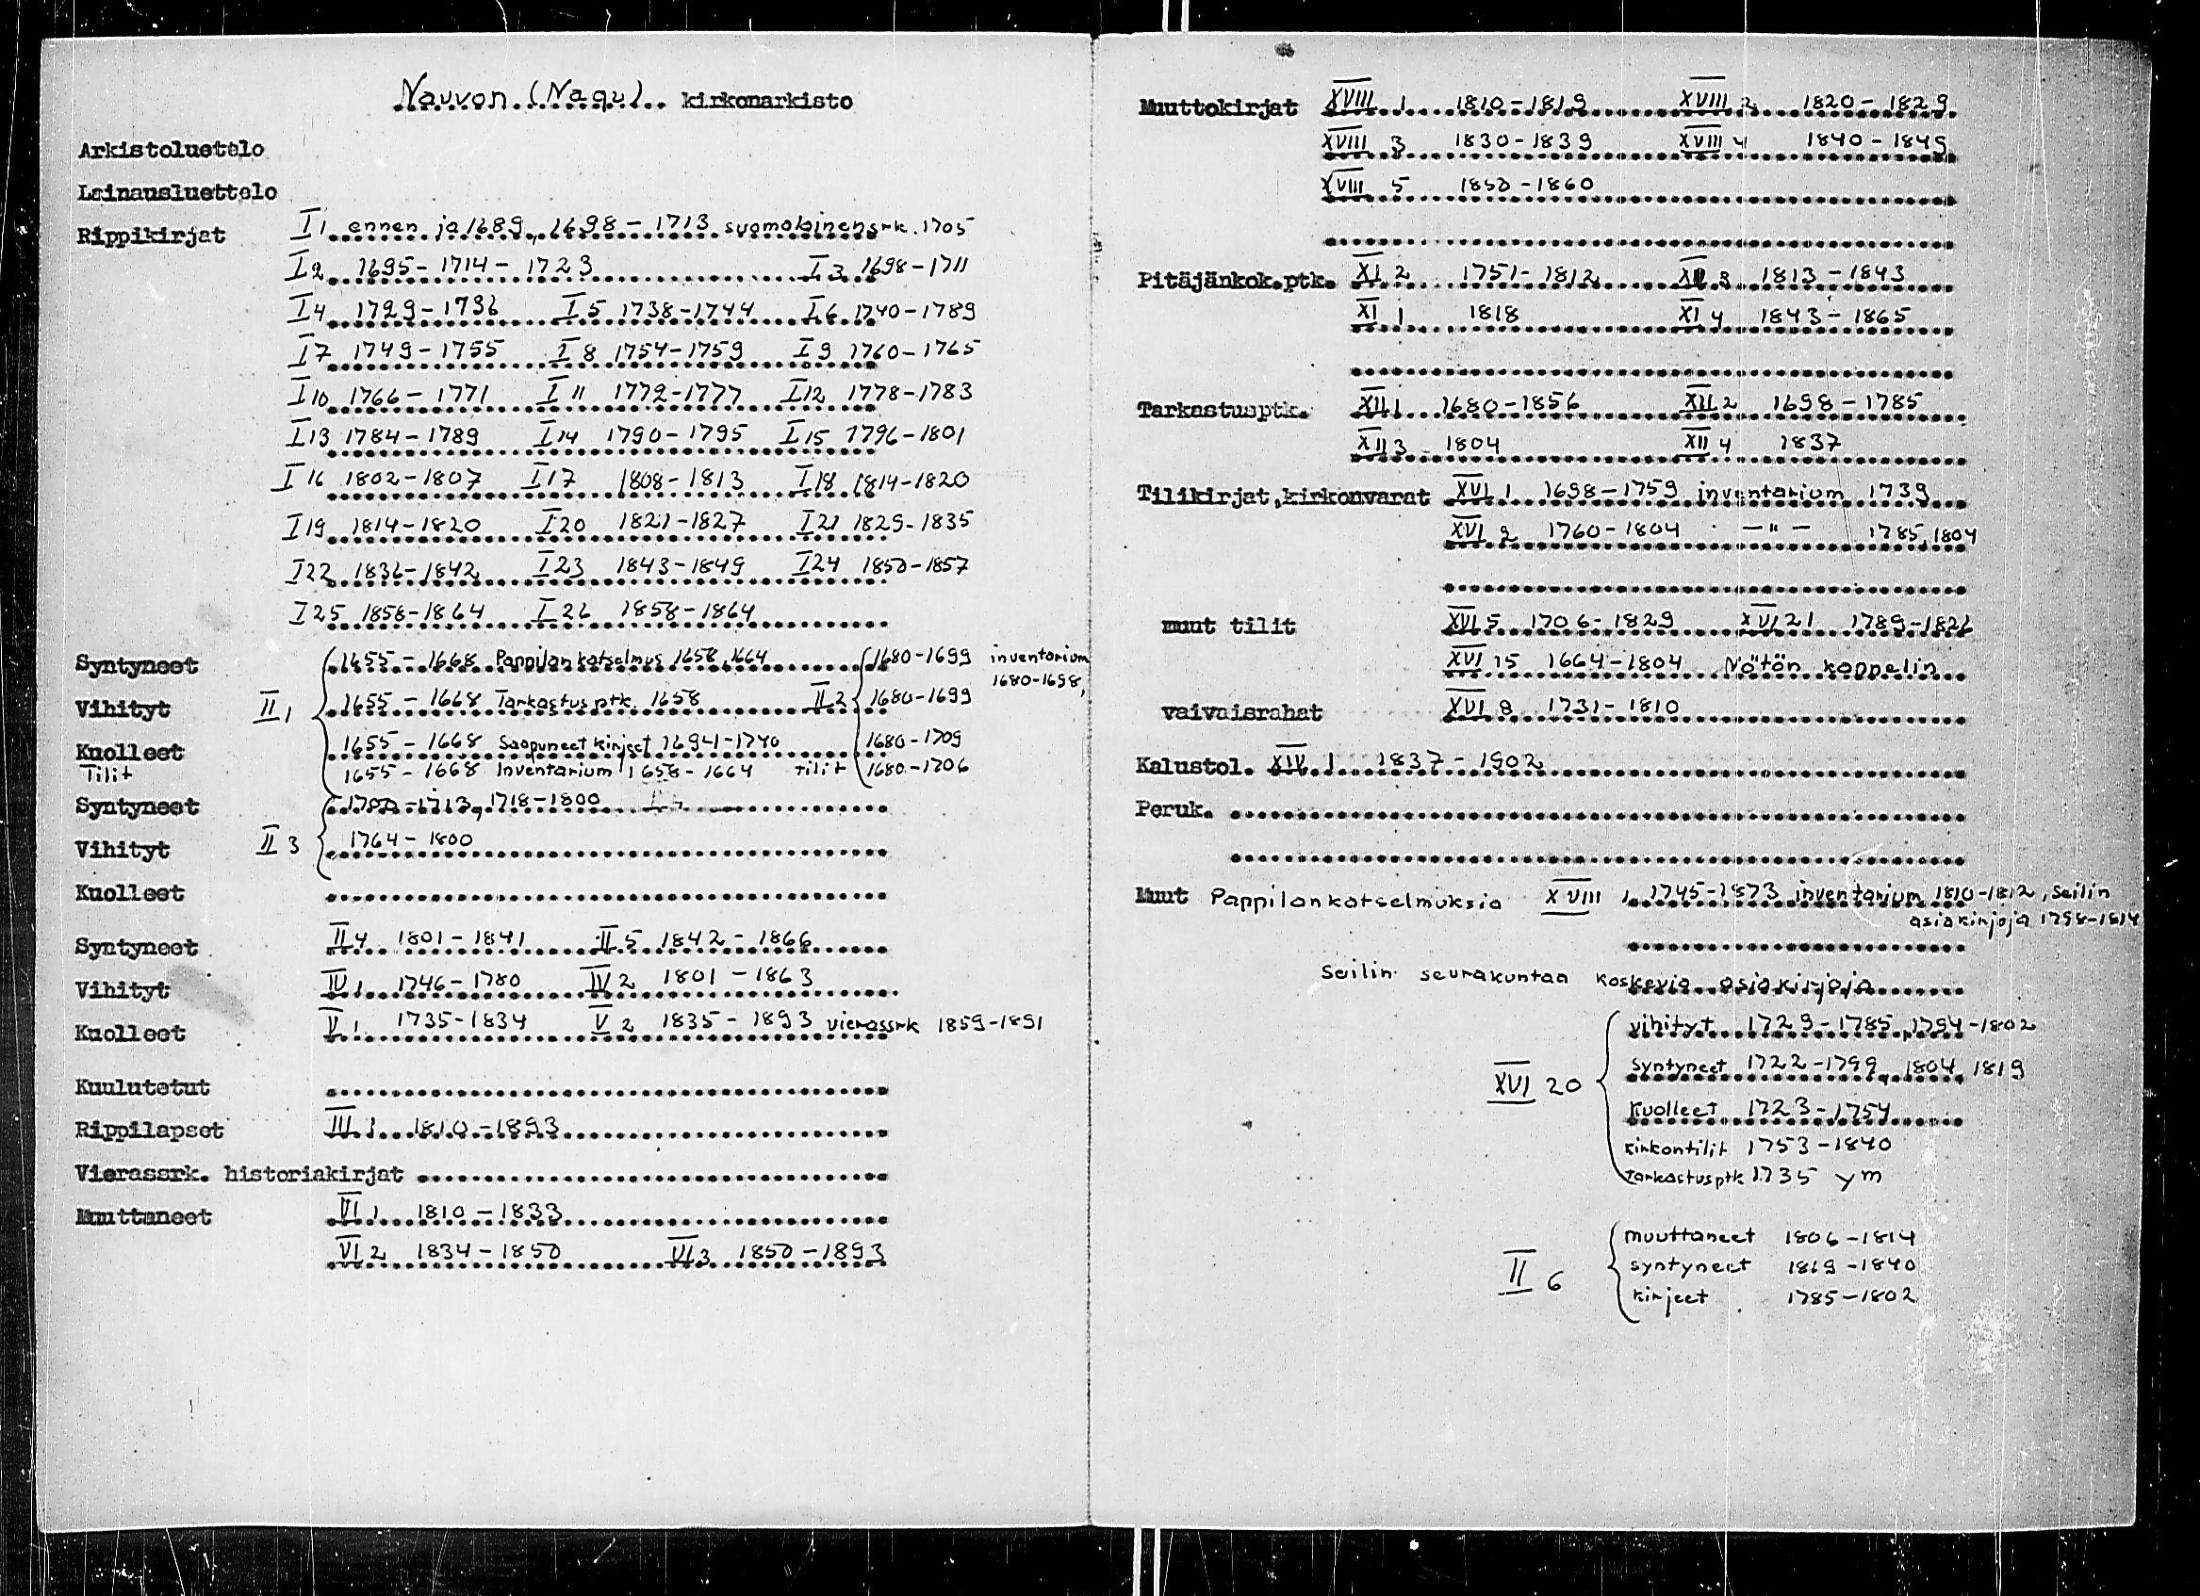 Nauvon (Nagu) kirkonarkisto
Arkistoluettelo
Lainausluettelo
Rippikirjat I 1 ennen ja 1689, 1698-1713 suomalainen srk. 1705
I 2 1695-1714-1723 I 3 1698-1711
I 4 1729-1736 I 5 1738-1744 I 6 1740-1789
I 7 1749-1755 I 8 1754-1759 I 9 1760-1765
I 10 1766-1771 I 11 1772-1777 I 12 1778-1783
I 13 1784-1789 I 14 1790-1795 I 15 1796-1801
I 16 1802-1807 I 17 1808-1813 I 18 1814-1820
I 19 1814-1820 I 20 1821-1827 I 21 1829-1835
I 22 1836-1842 I 23 1843-1849 I 24 1850-1857
I 25 1858-1864 I 26 1858-1864
Syntyneet 1655-1668 Pappilan katselmus 1658, 1664 1680-1699 inventarium 1680-1698,
Vihityt II 1 1655-1668 Tarkastusptk. 1658 II 2 1680-1699
Kuolleet 1655-1668 Saapuneet kirjeet 1694-1740 1680-1709
Tilit 1655-1668 Inventarium 1658-1664 tilit 1680-1706
Syntyneet 1700-1713, 1718-1800
Vihityt II 3 1764-1800
Kuolleet
Syntyneet II 4 1801-1841 II 5 1842-1866
Vihityt IV 1 1746-1780 IV 2 1801-1863
Kuolleet V 1 1735-1834 V 2 1835-1893 vierassrk 1859-1891
Kuulutetut
Rippilapset III 1 1810-1893
Vierassrk. historiakirjat
Muuttaneet VI 1 1810-1833
VI 2 1834-1850 VI 3 1850-1893
Muuttokirjat XVIII 1 1810-1819 XVIII 2 1820-1829
XVIII 3 1830-1839 XVIII 4 1840-1849
XVIII 5 1850-1860
Pitäjänkok.ptk. XI 2 1751-1812 XI 3 1813-1843
XI 1 1818 XI 4 1843-1865
Tarkastusptk. XII 1 1680-1856 XII 2 1698-1785
XII 3 1804 XII 4 1837
Tilikirjat,kirkonvarat XVI 1 1698-1759 inventarium 1739
XVI 2 1760-1804 -"- 1785, 1804
muut tilit XVI 5 1706-1829 XVI 21 1789-1826
XVI 15 1664-1804 Nötön kappelin
vaivaisrahat XVI 8 1731-1810
Kalustol. XIV 1 1837-1902
Peruk.
Muut Pappilankatselmuksia XVIII 1 1745-1873 inventarium 1810-1812, Seilin
asiakirjoja 1758-1814
Seilin seurakuntaa koskevia asiakirjoja
vihityt 1729-1785, 1794-1802
XVI 20 syntyneet 1722-1799, 1804, 1819
kuolleet 1723-1754
kirkontilit 1753-1840
tarkastusptk 1735 ym
muuttaneet 1806-1814
II 6 syntyneet 1819-1840
kirjeet 1785-1802